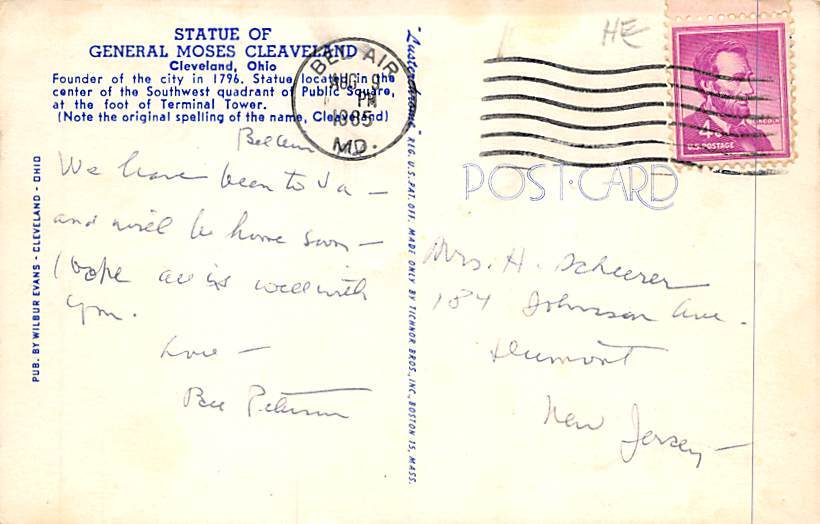 STATUE OF
GENERAL MOSES CLEAVELAND
Cleveland, Ohio
Founder of the city in 1796. Statue located in the
center of the Southwest quadrant of Public Square,
at the foot of Terminal Tower.
(Note the original spelling of the name, Cleaveland)
BEL AIR
AUG 9
PM
1965
MD.
HE
LINCOLN
4c
U.S. POSTAGE
POST-CARD
Bel Air
We have been to Va —
and will be home soon —
I hope all is well with
you.
Love —
Peterson
PUB. BY WILBUR EVANS - CLEVELAND - OHIO
"Lusterchrome" REG. U.S. PAT. OFF. MADE ONLY BY TICHNOR BROS., INC., BOSTON 15, MASS.
Mrs. H. Scheerer
184 Johnson Ave.
Dumont
New Jersey —